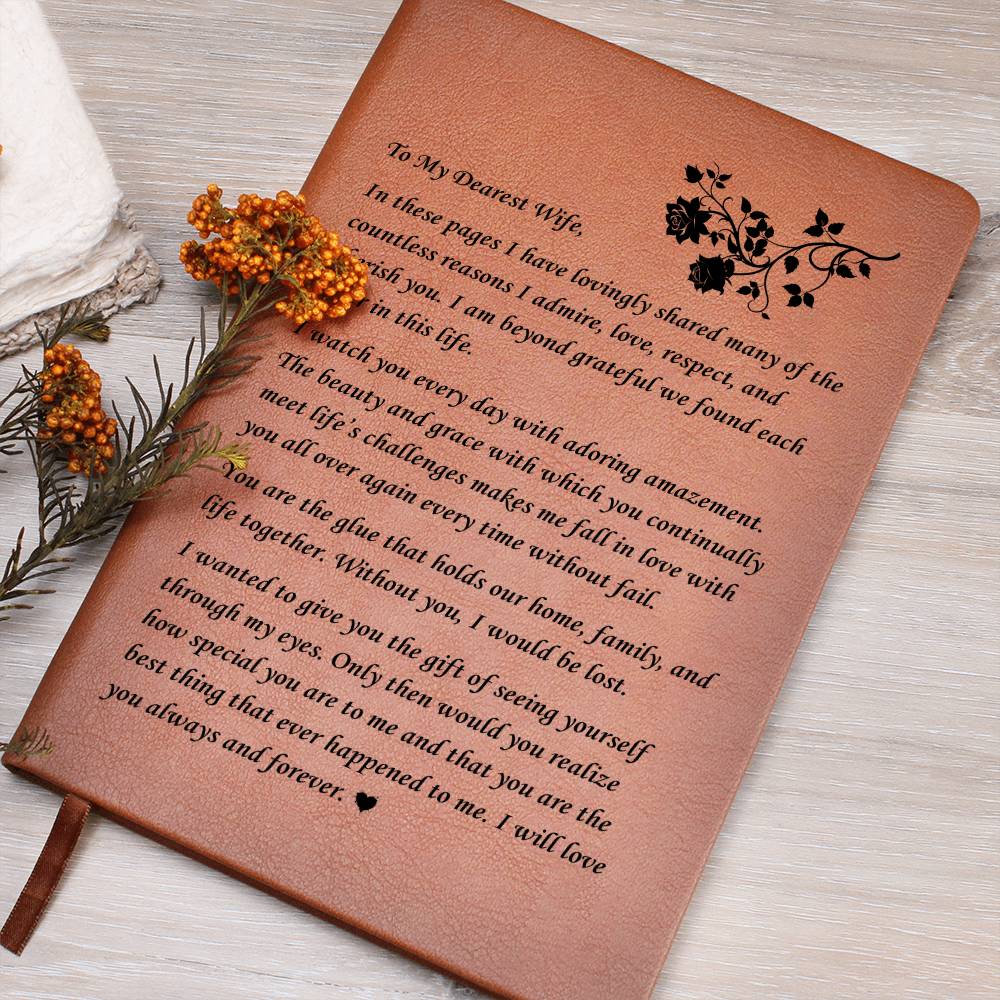 To My Dearest Wife,
In these pages I have lovingly shared many of the
countless reasons I admire, love, respect, and
you. I am beyond grateful we found each
in this life.
I watch you every day with adoring amazement.
The beauty and grace with which you continually
meet life's challenges makes me fall in love with
you all over again every time without fail.
You are the glue that holds our home, family, and
life together. Without you, I would be lost.
I wanted to give you the gift of seeing yourself
through my eyes. Only then would you realize
how special you are to me and that you are the
best thing that ever happened to me. I will love
you always and forever.